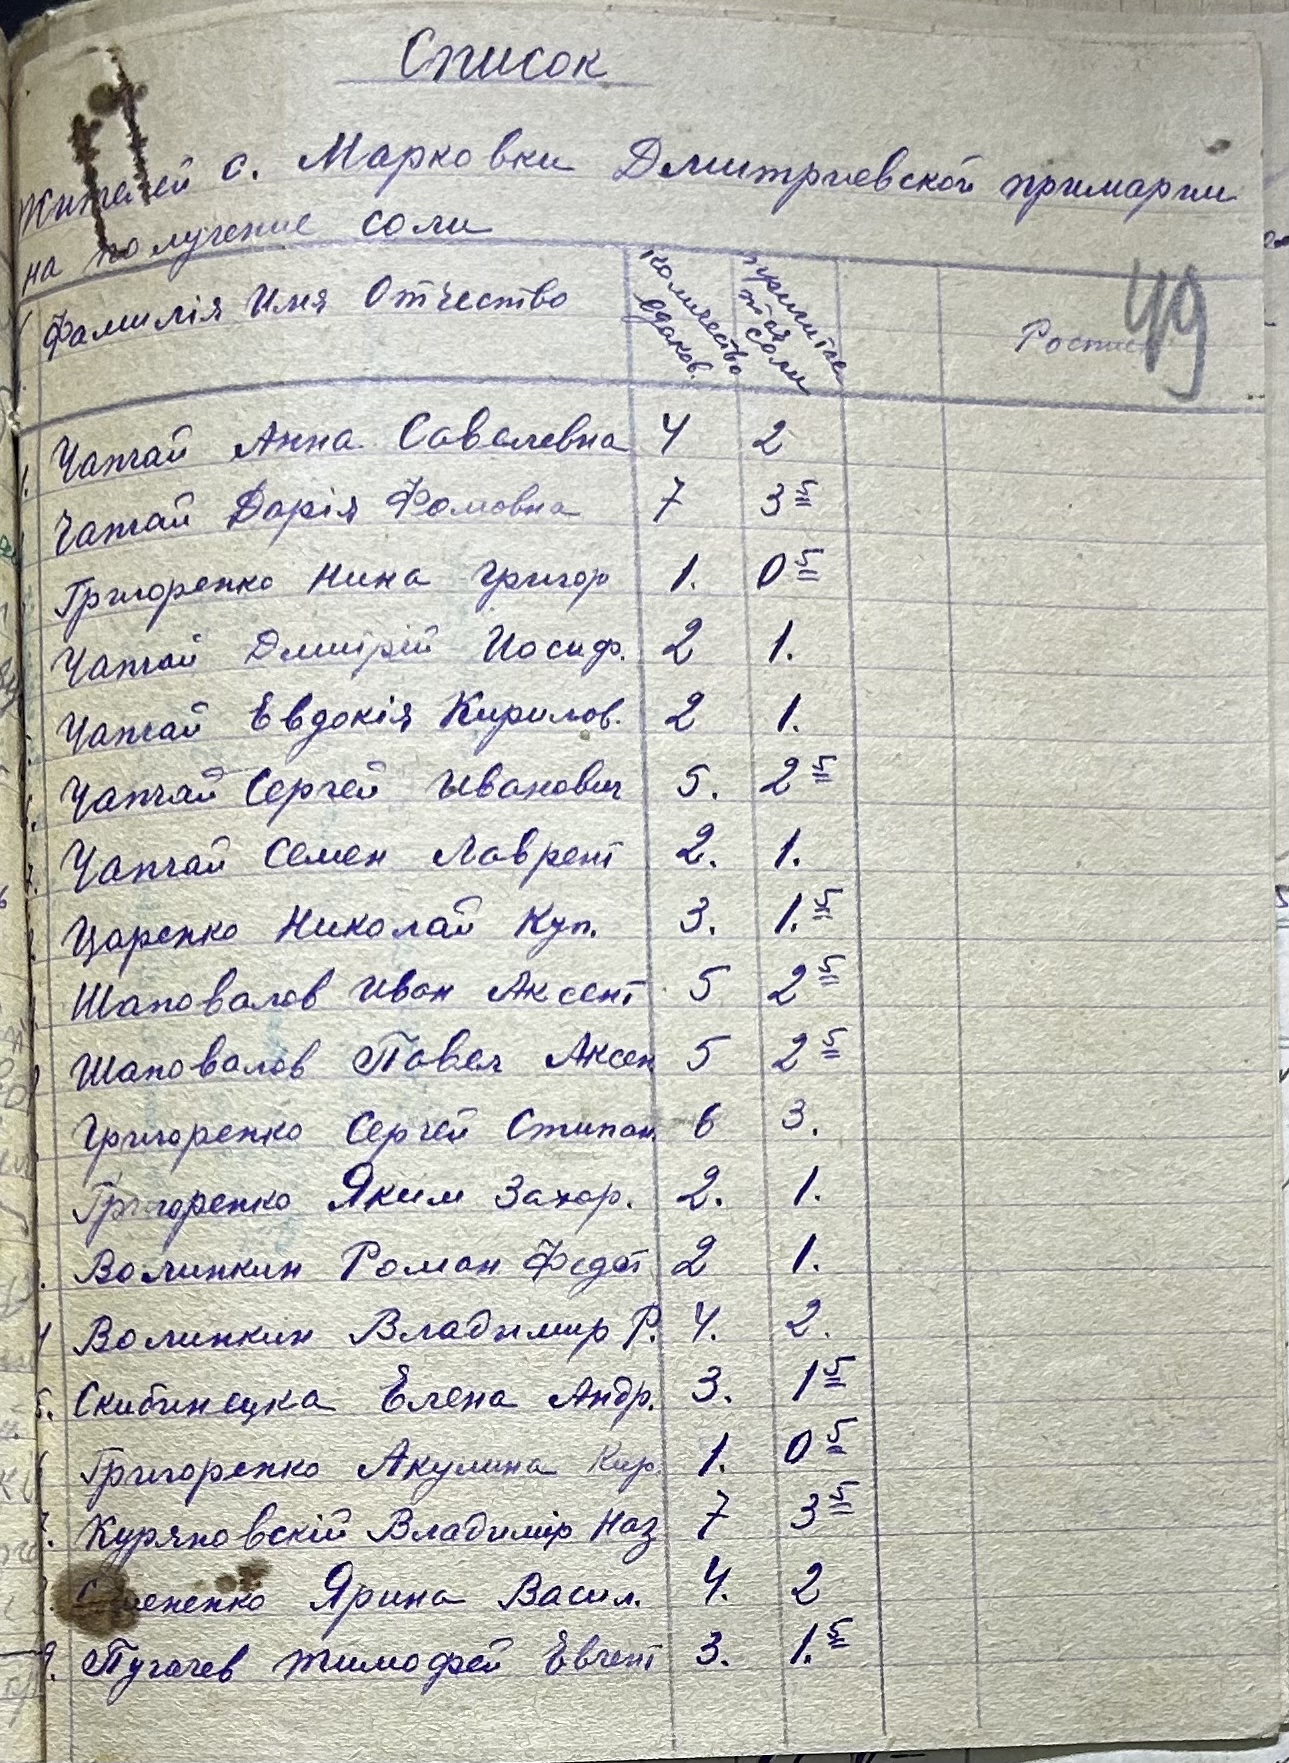 Список
Жителей с. Марковки Дмитриевской примарии
на получение соли
49
Фамилія Имя Отчество количество едоков. причитается соли Роспис
1. Чапчай Анна Савелевна 4 2
Чапчай Дарія Фомовна 7 3 5
Григоренко Нина Григор 1. 0 5
Чапчай Дмитрій Иосиф. 2 1.
Чапчай Евдокія Кирилов. 2 1.
6. Чапчай Сергей Иванович 5. 2 5
7. Чапчай Семен Лаврент 2. 1.
Царенко Николай Куп. 3. 1. 5
Шаповалов Иван Аксент 5 2 5
Шаповалов Павел Аксен 5 2 5
Григоренко Сергей Стипан. 6 3.
Григоренко Яким Захар. 2. 1.
Волинкин Роман Федот 2 1.
Волинкин Владимир Р. 4. 2.
5. Скибинецка Елена Андр. 3. 1 5
6 Григоренко Акулина Кир. 1. 0 5
7. Куряновскій Владимір Наз 7 3 5
Ярина Васил. 4. 2
9. Пугачев Тимофей Евгент 3. 1. 5